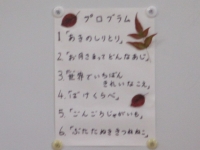 プログラム
1.「あきのしりとり」
2.「お月さまってどんなあじ」
3.「世界でいちばん
きれいなこえ」
4.「ばけくらべ」
5.「ごんごろじゃがいも」
6.「ぶたたぬききつねねこ」